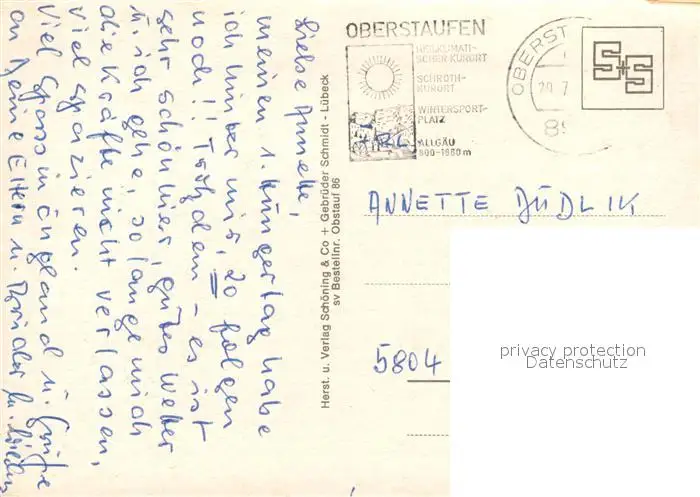 Liebe Annette,
meinen 1. Hungertag habe
ich hinter mir, 20 folgen
noch!! Trotzdem – es ist
sehr schön hier, gutes Wetter
u. ich gehe, so lange mich
die Kräfte nicht verlassen,
viel spazieren.
Viel Spass in England u. Grüße
an Deine Eltern u. Brüder
Herst. u. Verlag Schöning & Co + Gebrüder Schmidt - Lübeck
sv Bestellnr. Obstauf 86
OBERSTAUFEN
HEILKLIMATI-
SCHER KURORT
SCHROTH-
KURORT
WINTERSPORT-
PLATZ
ALLGÄU
800-1860 m
OBERST
20. 7
89
S+S
ANNETTE
5804
privacy protection
Datenschutz